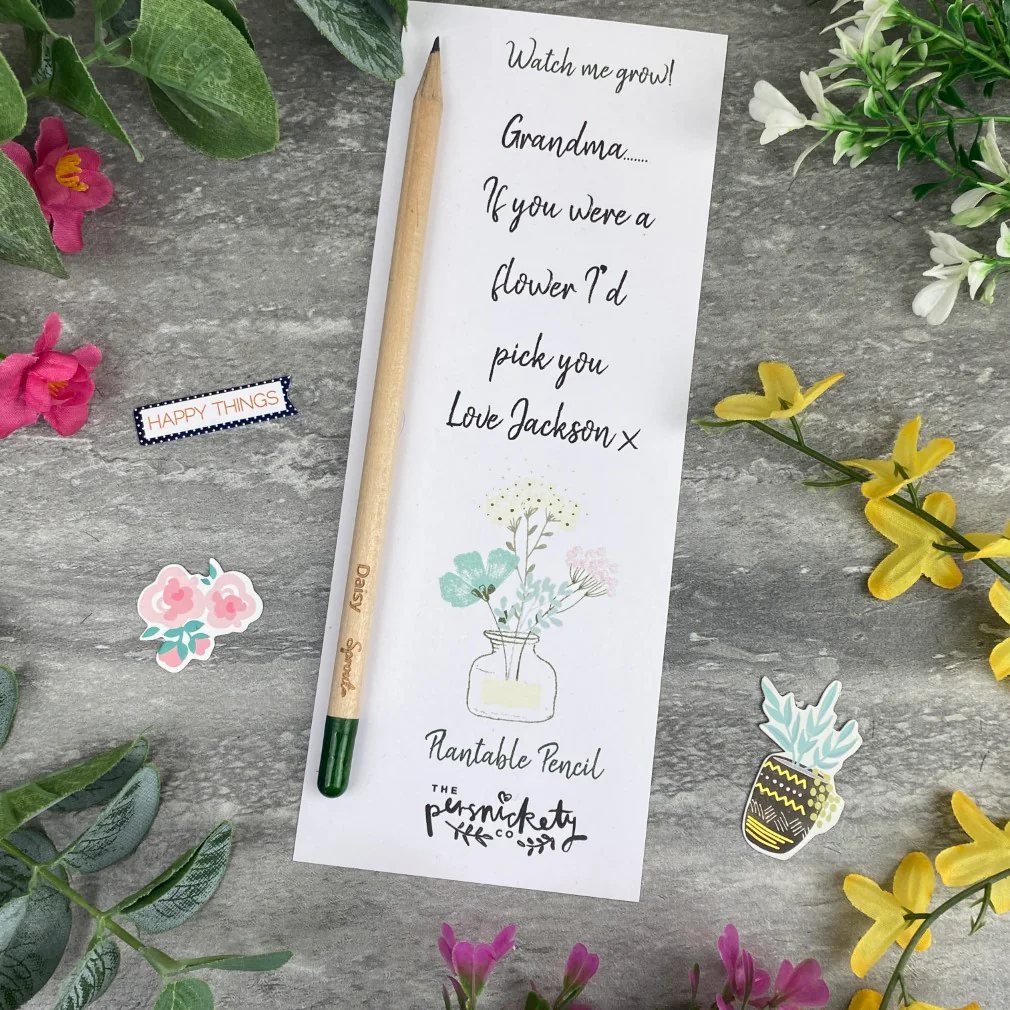 Watch me grow!
Grandma.......
If you were a
flower I'd
pick you
Love Jackson x
HAPPY THINGS
Daisy Sprout
Plantable Pencil
THE
persnickety
CO